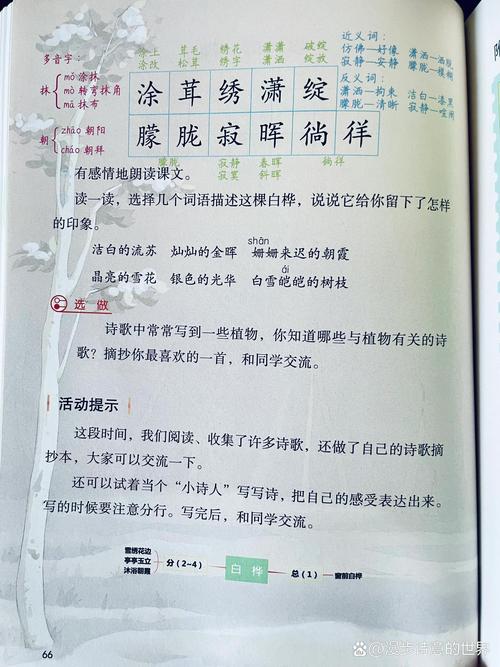 多音字：
抹 mǒ 涂抹
mò 转弯抹角
mā 抹布
朝 zhāo 朝阳
cháo 朝拜
涂上 茸毛 绣花 潇潇 破绽
涂改 松茸 绣字 潇洒 绽放
涂 茸 绣 潇 绽
朦 胧 寂 晖 徜 徉
朦胧 寂静 春晖 徜徉
寂寞 斜晖
近义词：
仿佛—好像 潇洒—洒脱
寂静—安静 朦胧—模糊
反义词：
潇洒—拘束 洁白—漆黑
朦胧—清晰 寂静—喧闹
有感情地朗读课文。
读一读，选择几个词语描述这棵白桦，说说它给你留下了怎样
的印象。
洁白的流苏 灿灿的金晖 姗姗来迟的朝霞
shān
晶亮的雪花 银色的光华 白雪皑皑的树枝
ái
选做
诗歌中常常写到一些植物，你知道哪些与植物有关的诗
歌？摘抄你最喜欢的一首，和同学交流。
活动提示
这段时间，我们阅读、收集了许多诗歌，还做了自己的诗歌摘
抄本，大家可以交流一下。
还可以试着当个“小诗人”写写诗，把自己的感受表达出来。
写的时候要注意分行。写完后，和同学交流。
雪绣花边
亭亭玉立
沐浴朝霞
分（2~4）
白桦
总（1）
窗前白桦
66
漫步诗意的世界